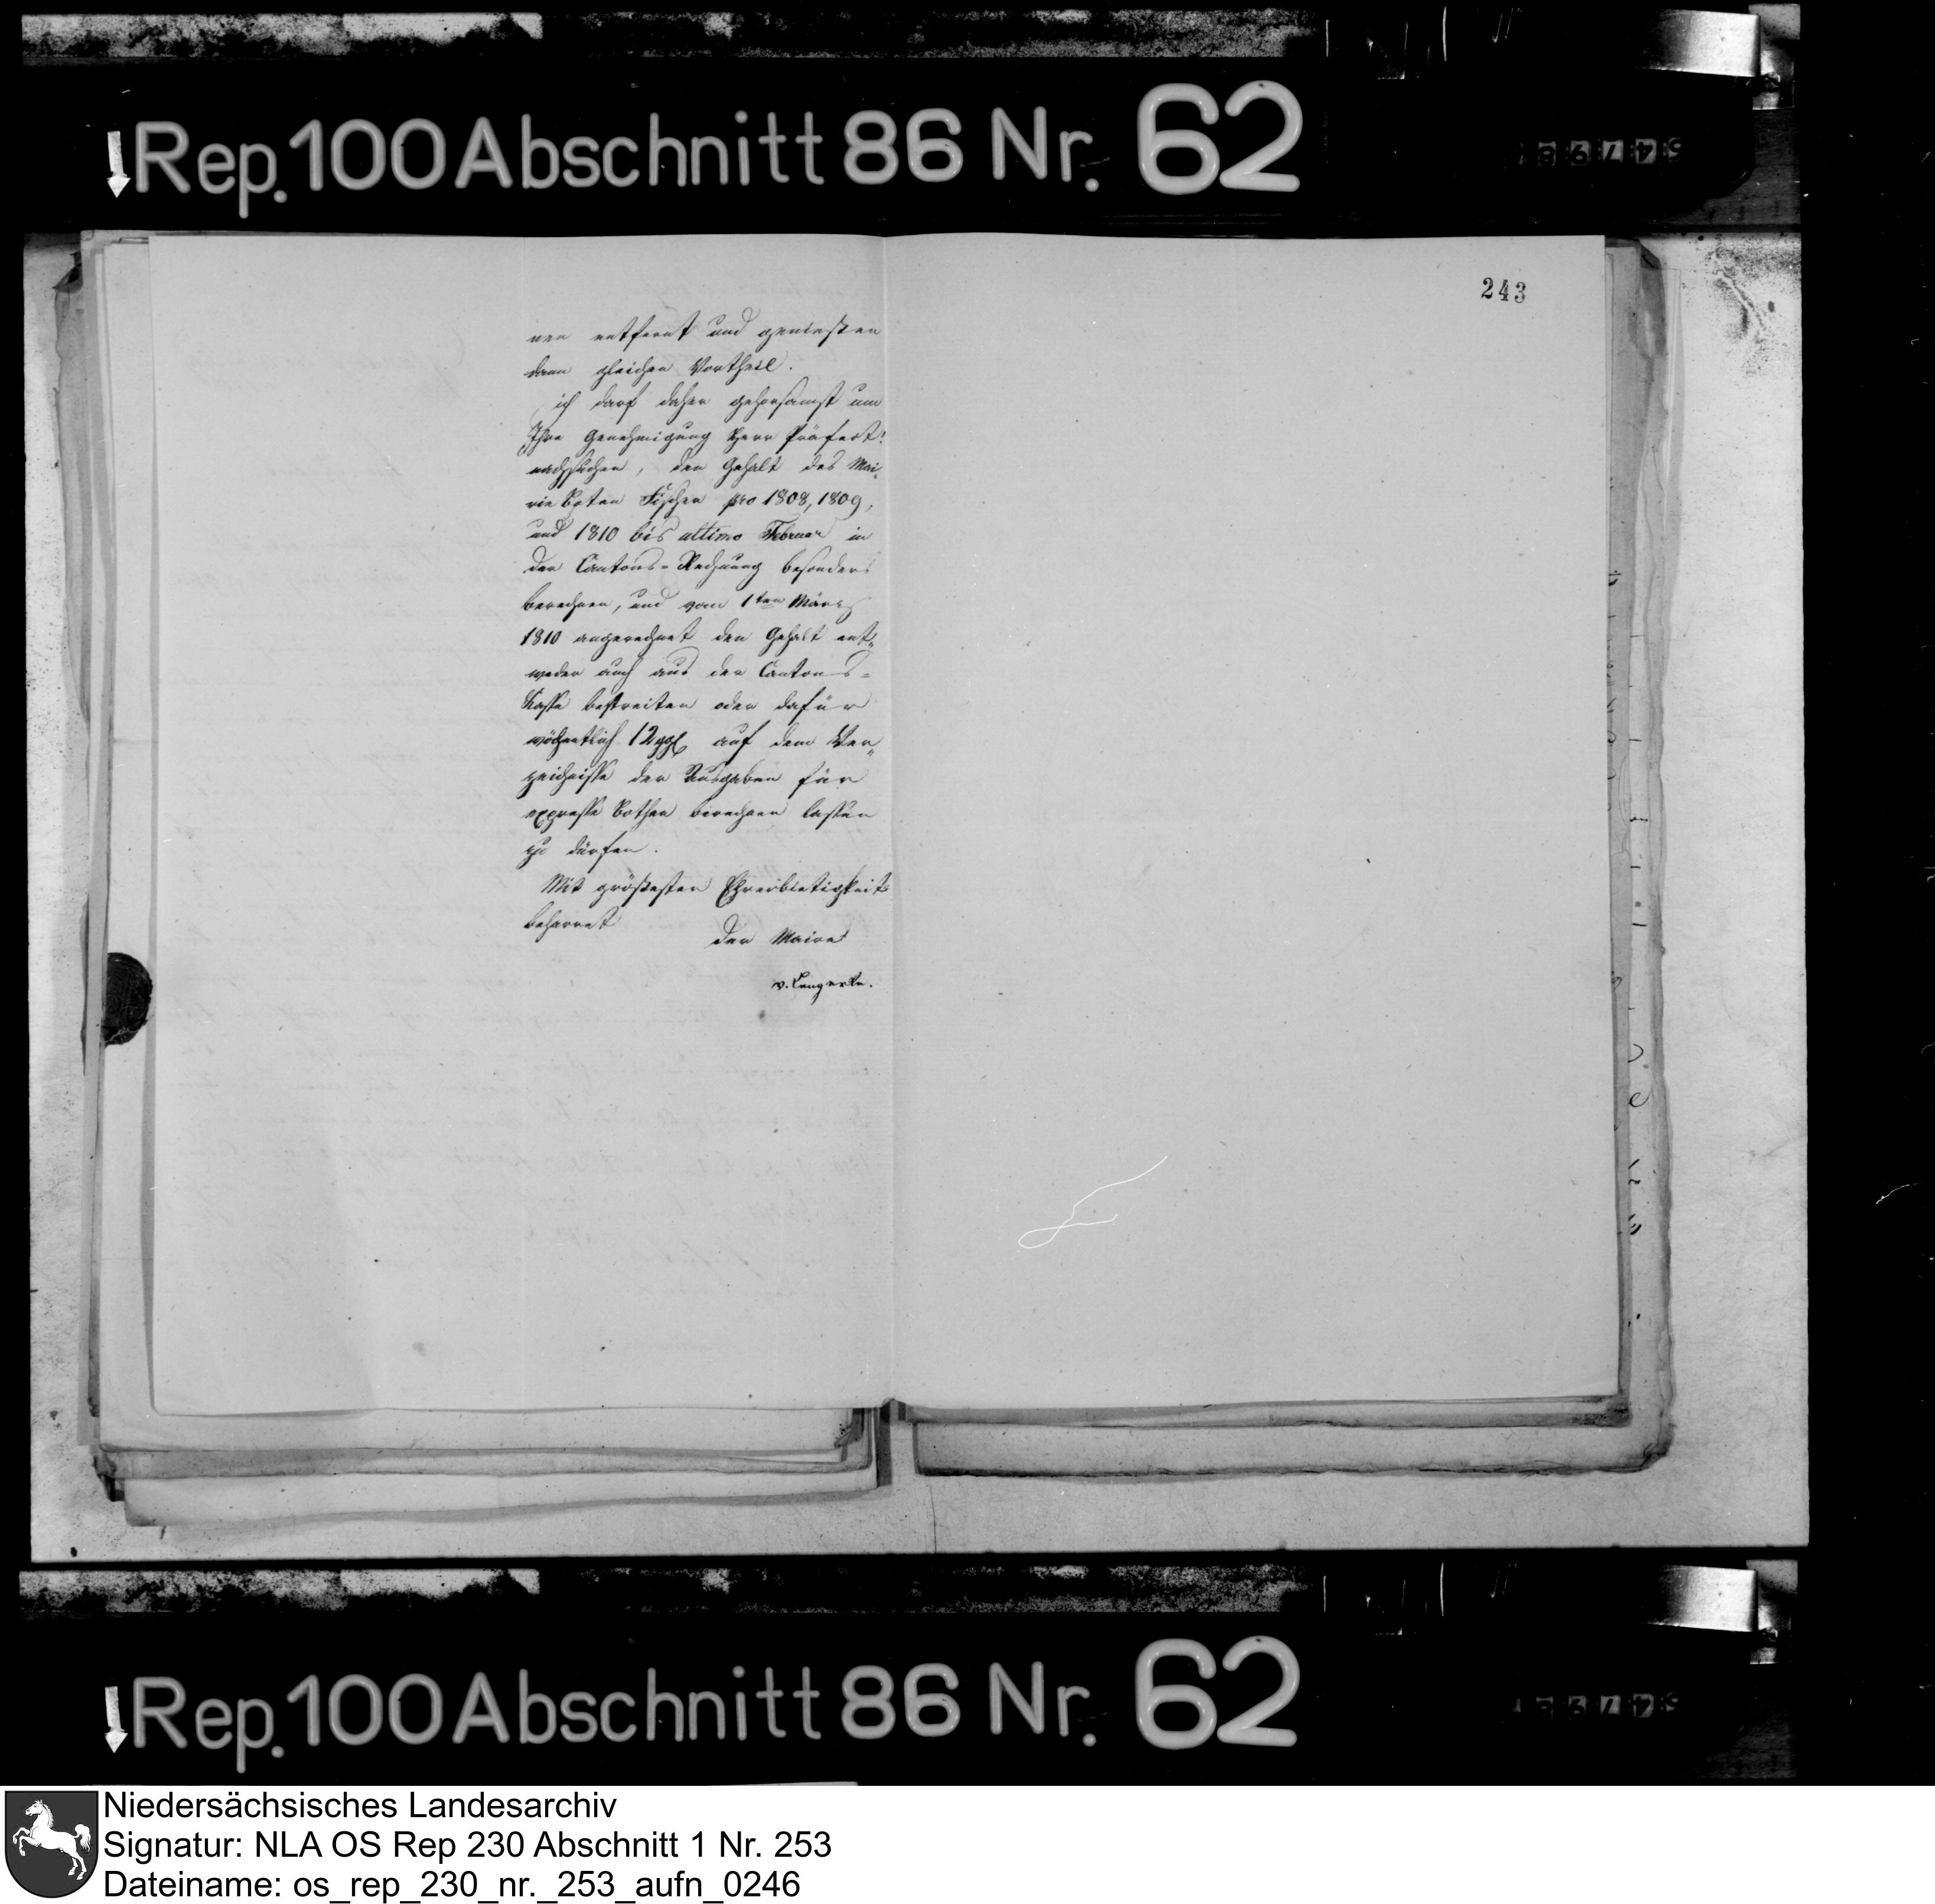 Rep. 100 Abschnitt 86 Nr. 62
243
nen entfernt und genießen
dann gleichen Vortheil.
ich darf daher gehorsamst um
Ihre Genehmigung Herr Präfect!
nachsuchen, den Gehalt des Mai-
rie Boten Fischer pro 1808, 1809,
und 1810 bis ultimo Februar in
der Cantons-Rechnung besonders
berechnen, und vom 1ten März
1810 angerechnet den Gehalt ent-
weder auch aus der Cantons-
Kasse bestreiten oder dafür
wöchentlich 12 ggl auf dem Ver-
zeichnisse der Ausgaben für
expresse Bothen berechnen lassen
zu dürfen.
Mit größester Ehrerbietigkeit
beharret
der Maire
v. Lengerke.
Rep. 100 Abschnitt 86 Nr. 62
Niedersächsisches Landesarchiv
Signatur: NLA OS Rep 230 Abschnitt 1 Nr. 253
Dateiname: os_rep_230_nr._253_aufn_0246